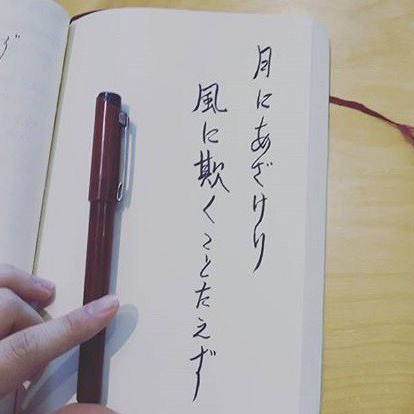 月にあざけり
風に欺くことたえず